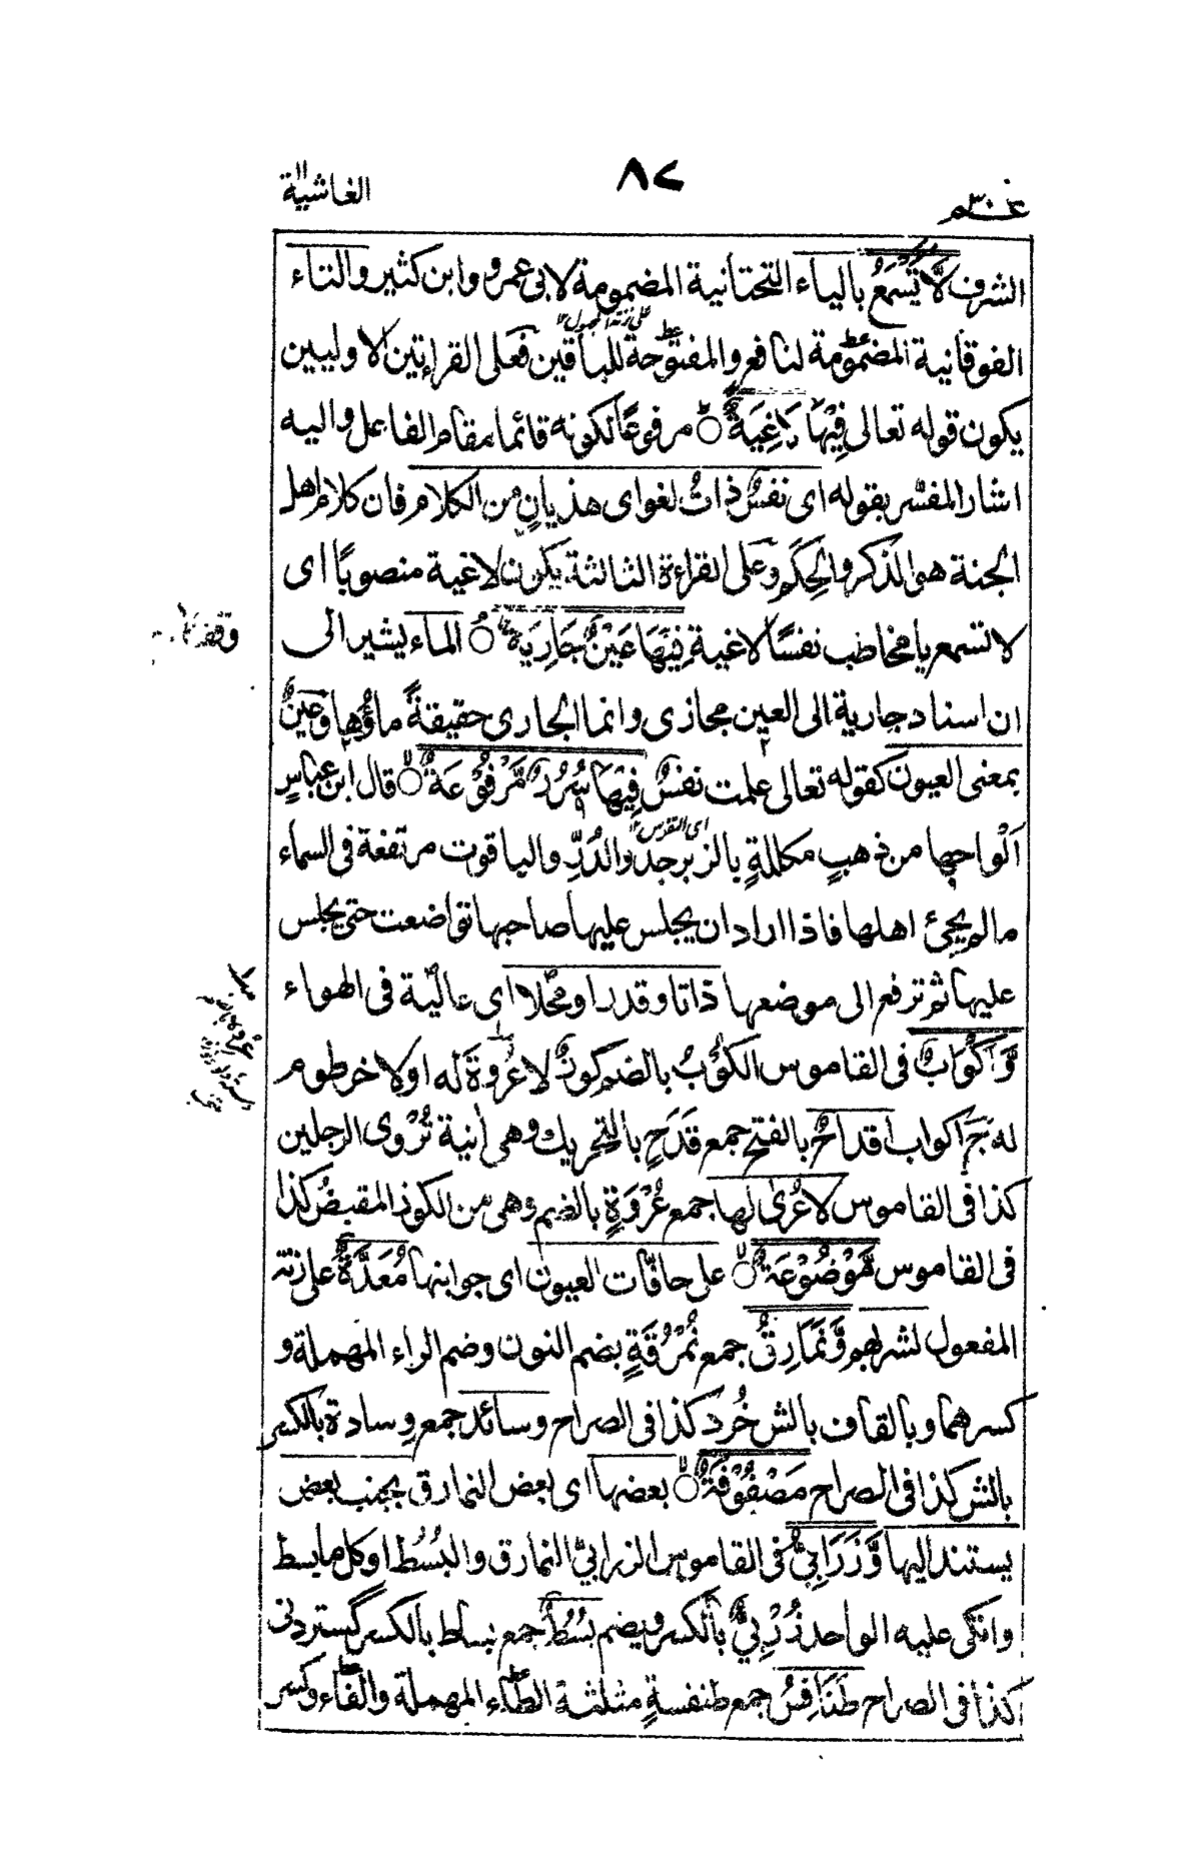 عم ٣٠
٨٧
الغاشية
الشرف لَّا تَسْمَعُ بالياء التحتانية المضمومة لابى عمرو وابن كثير والتاء
الفوقانية المضمومة لنافع والمفتوحة للباقين فعلى القراءتين الاوليين
يكون قوله تعالى فِيْهَا لَاغِيَةً مرفوعًا لكونه قائما مقام الفاعل واليه
اشار المفسّر بقوله اى نفسٌ ذاتُ لغو اى هذيانٍ من الكلام فان كلام اهل
الجنة هو الذكر والحِكَم وعلى القراءة الثالثة يكون لاغية منصوبًا اى
لا تسمع يا مخاطب نفسًا لاغية فِيْهَا عَيْنٌ جَارِيَةٌ الماء يشير الى
ان اسناد جارية الى العين مجازى وانما الجارى حقيقةً ماؤها وعينٌ
بمعنى العيون كقوله تعالى علمت نفسٌ فِيْهَا سُرُرٌ مَّرْفُوْعَةٌ قال ابن عباسٍ
اَلْواحها من ذهبٍ مكللةٍ بالزبرجد والدُّرِّ والياقوت مرتفعة فى السماء
ما لم يجئ اهلها فاذا اراد ان يجلس عليها صاحبها تواضعت حتى يجلس
عليها ثم ترفع الى موضعها ذاتا وقدرا ومحلا اى عالية فى الهواء
وَّاَكْوَابٌ فى القاموس الكُوْبُ بالضم كوزٌ لا عُروةَ له اولا خرطوم
له ج اكواب اقداحٌ بالفتح جمع قَدَحٍ بالتحريك وهى اٰنية تُرْوى الرجلين
كذا فى القاموس لا عُرى لها جمع عُرْوَةٍ بالضم وهى من الكوز المقبضُ كذا
فى القاموس مَّوْضُوْعَةٌ على حافّات العيون اى جوانبها مُعَدَّةٌ على زنة
المفعول لشربهم وَّنَمَارِقُ جمع نُمْرُقَةٍ بضم النون وضم الراء المهملة و
كسرهما وبالقاف بالش خُرد كذا فى الصراح وسائد جمع وِسادة بالكسر
بالش كذا فى الصراح مَصْفُوْفَةٌ بعضها اى بعض النمارق بجنب بعض
يستند اليها وَّزَرَابِىُّ فى القاموس الزرابىّ النمارق والبُسُط او كل ما بسط
واتكى عليه الواحد زُرْبىٌّ بالكسر ويضم بُسُطٌ جمع بساط بالكسر گستردنى
كذا فى الصراح طَنَافِسُ جمع طنفسةٍ مثلثة الطاء المهملة والفاء وكسر